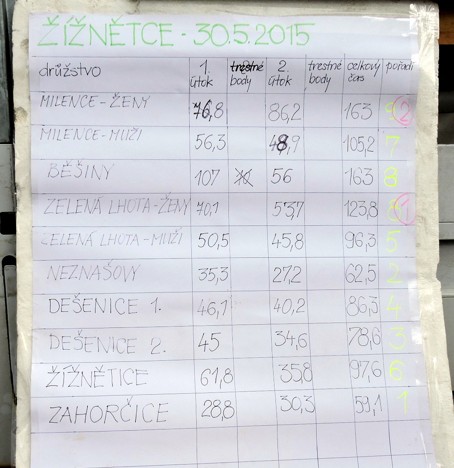 ŽÍŽNĚTCE - 30.5.2015
družstvo 1. útok trestné body 2. útok trestné body celkový čas pořadí
MILENCE - ŽENY 76,8 86,2 163 2
MILENCE - MUŽI 56,3 48,9 105,2 7
BĚŠINY 107 56 163 8
ZELENÁ LHOTA - ŽENY 70,1 53,7 123,8 1
ZELENÁ LHOTA - MUŽI 50,5 45,8 96,3 5
NEZNAŠOVY 35,3 27,2 62,5 2
DEŠENICE 1. 46,1 40,2 86,3 4
DEŠENICE 2. 45 34,6 78,6 3
ŽÍŽNĚTICE 61,8 35,8 97,6 6
ZAHORČICE 28,8 30,3 59,1 1